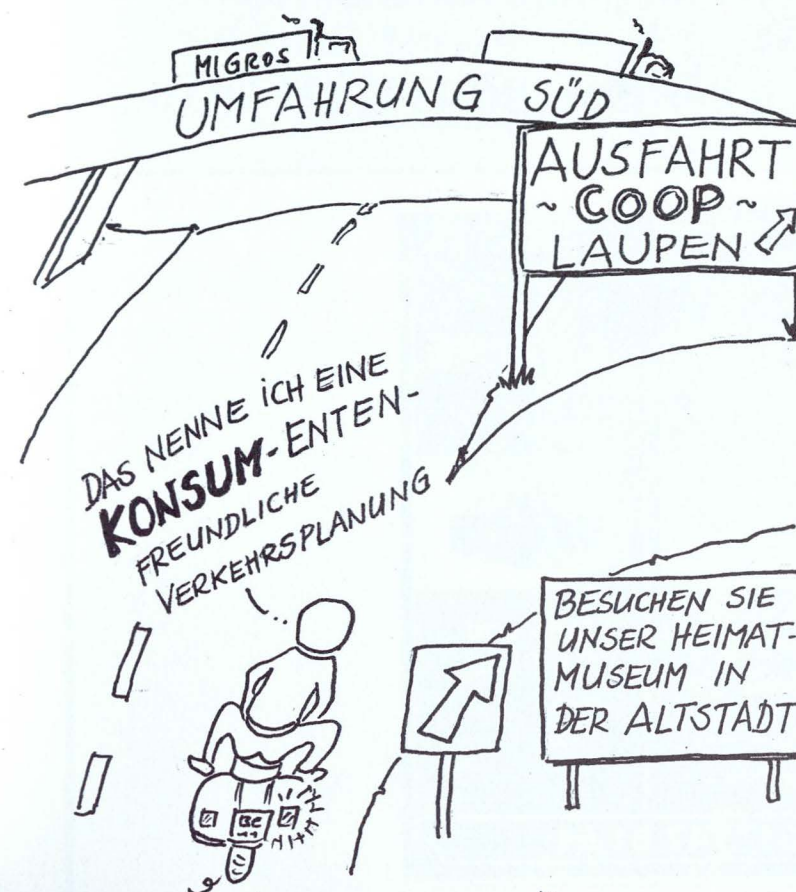 MIGROS
UMFAHRUNG SÜD
AUSFAHRT
~ COOP ~
LAUPEN
DAS NENNE ICH EINE
KONSUM-ENTEN-
FREUNDLICHE
VERKEHRSPLANUNG
BESUCHEN SIE
UNSER HEIMAT-
MUSEUM IN
DER ALTSTADT
BE